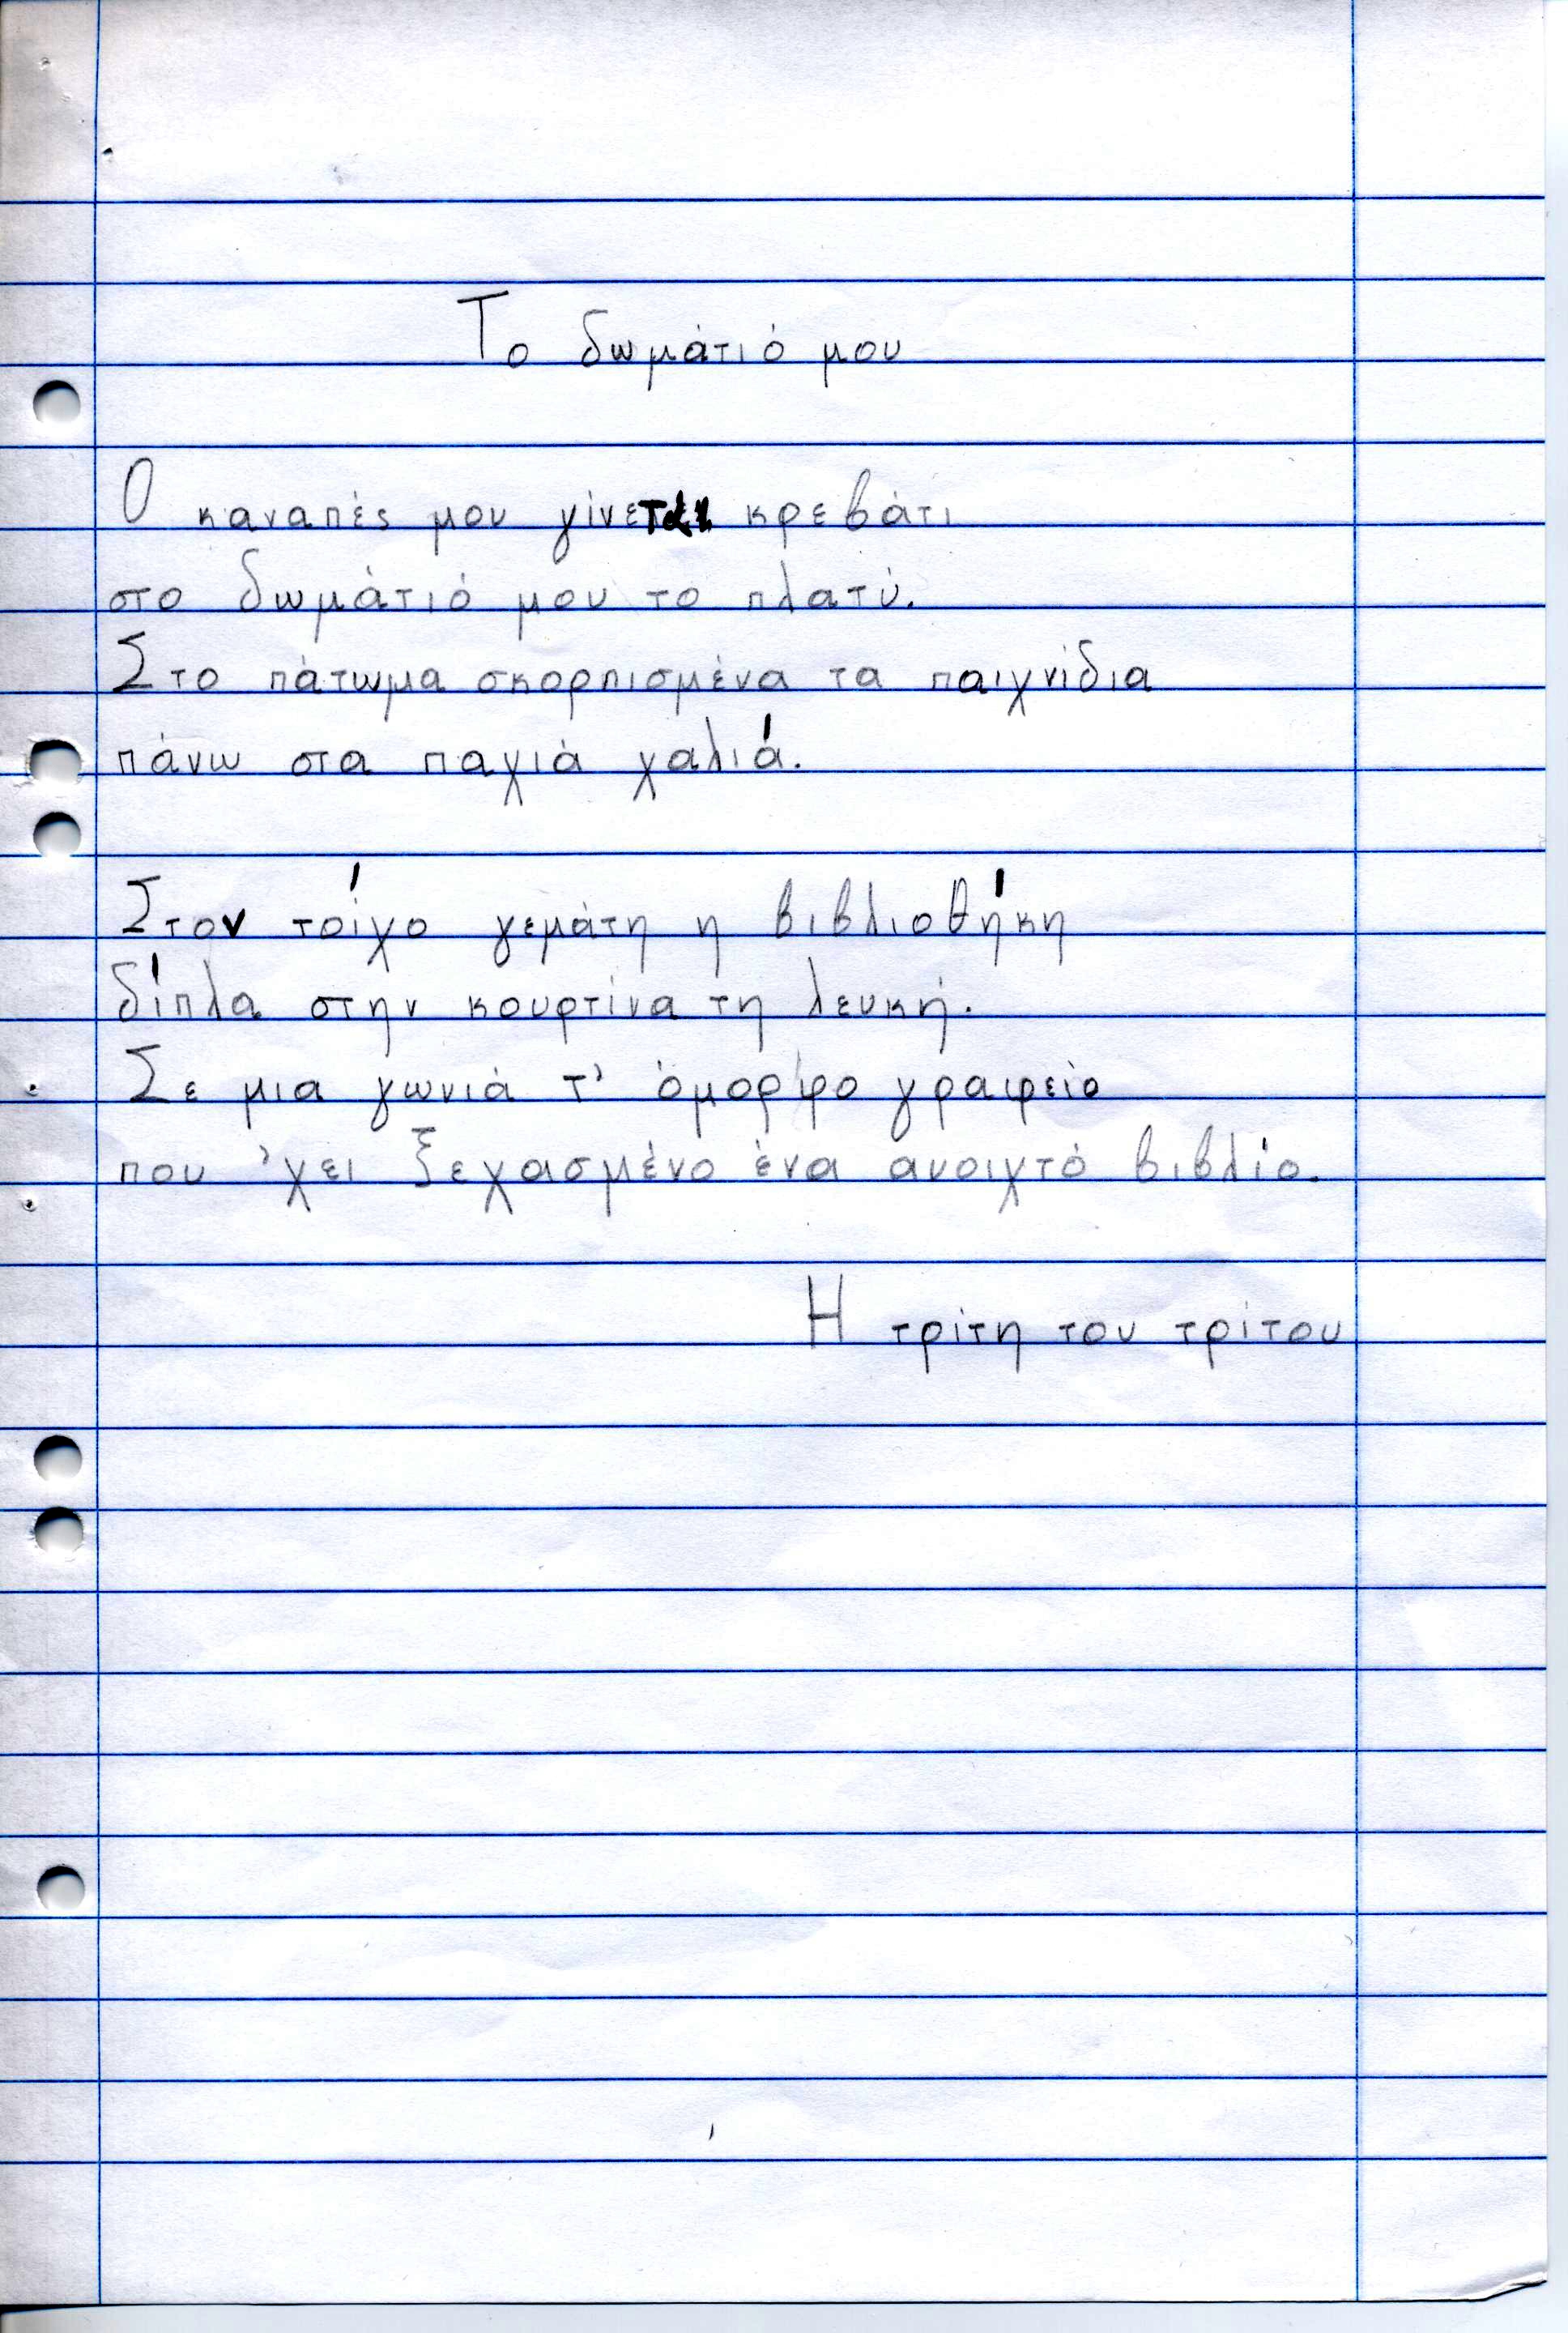 Το δωμάτιό μου
Ο καναπές μου γίνεται κρεβάτι
στο δωμάτιό μου το πλατύ.
Στο πάτωμα σκορπισμένα τα παιχνίδια
πάνω στα παχιά χαλιά.
Στον τοίχο γεμάτη η βιβλιοθήκη
δίπλα στην κουρτίνα τη λευκή.
Σε μια γωνιά τ' όμορφο γραφείο
που 'χει ξεχασμένο ένα ανοιχτό βιβλίο.
Η τρίτη του τρίτου